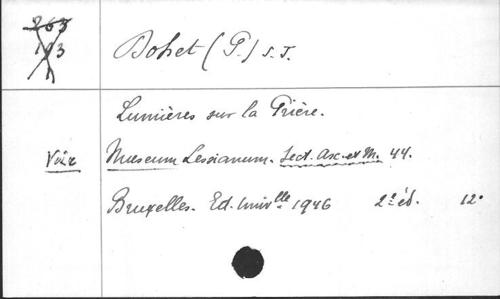 263
193
1
Bohet (P.) S.J.
Lumières sur la Prière.
Voir Museum Lessianum. Sect. Asc. et M. 44.
Bruxelles. Ed. Univlle 1946 2e éd. 12°